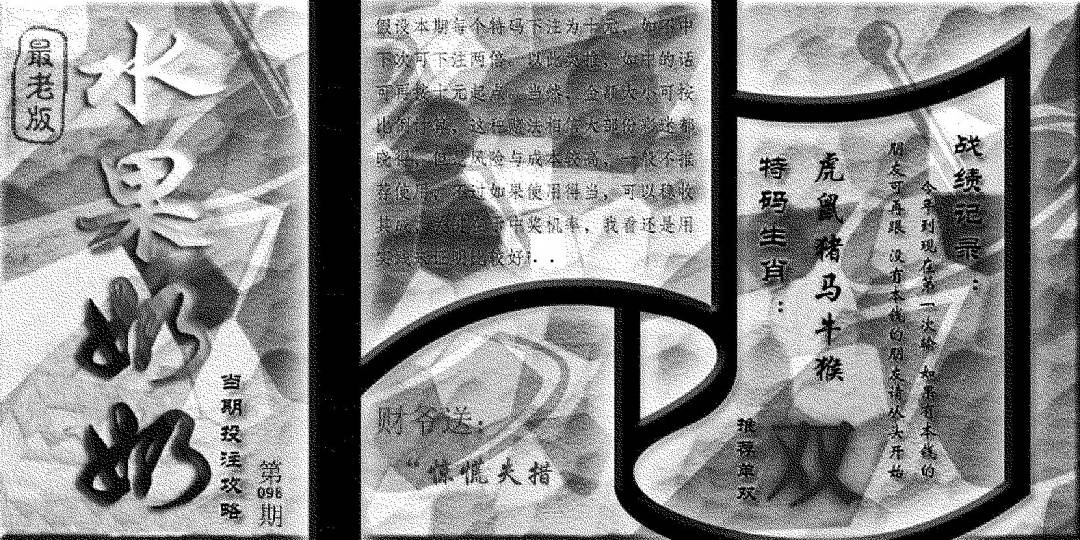 最老版
水果奶奶
当期投注攻略
第
098
期
假设本期每个特码下注为十元，如不中
下次可下注两倍，以此类推，如中的话
可再按十元起点，当然，金额大小可按
比例打算，这种赌法相信大部份彩迷都
晓得，但是风险与成本较高，一般不推
荐使用，不过如果使用得当，可以稳收
其成，中奖机率，我看还是用
实比较好！..
财爷送：
“惊慌失措
特码生肖：
虎鼠猪马牛猴
推荐单双
双
战绩记录：
今年到现在第一次输 如果有本钱的
朋友可再跟 没有本钱的朋友请坐大开始